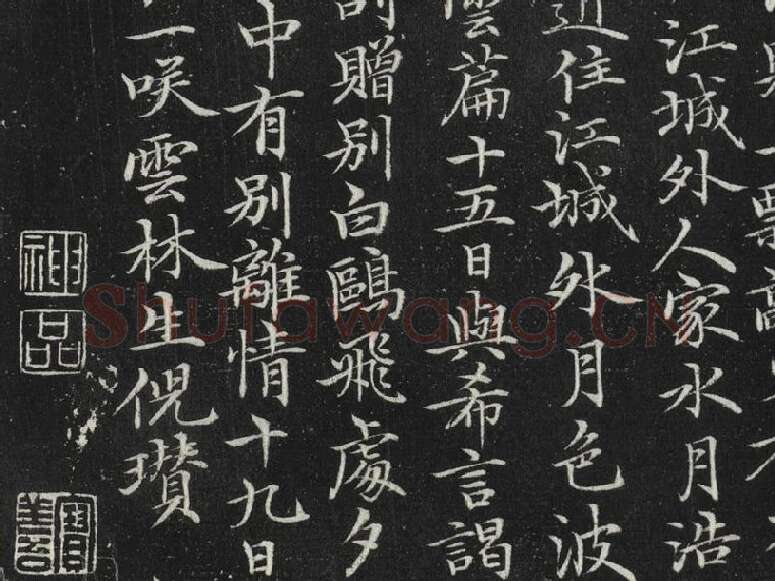 一票
江城外人家水月浩
近住江城外月色波
雲篇十五日與希言謁
贈别白鷗飛處夕
中有别離情十九日
一咲雲林生倪瓚
神品
寶
Shufawang.CN